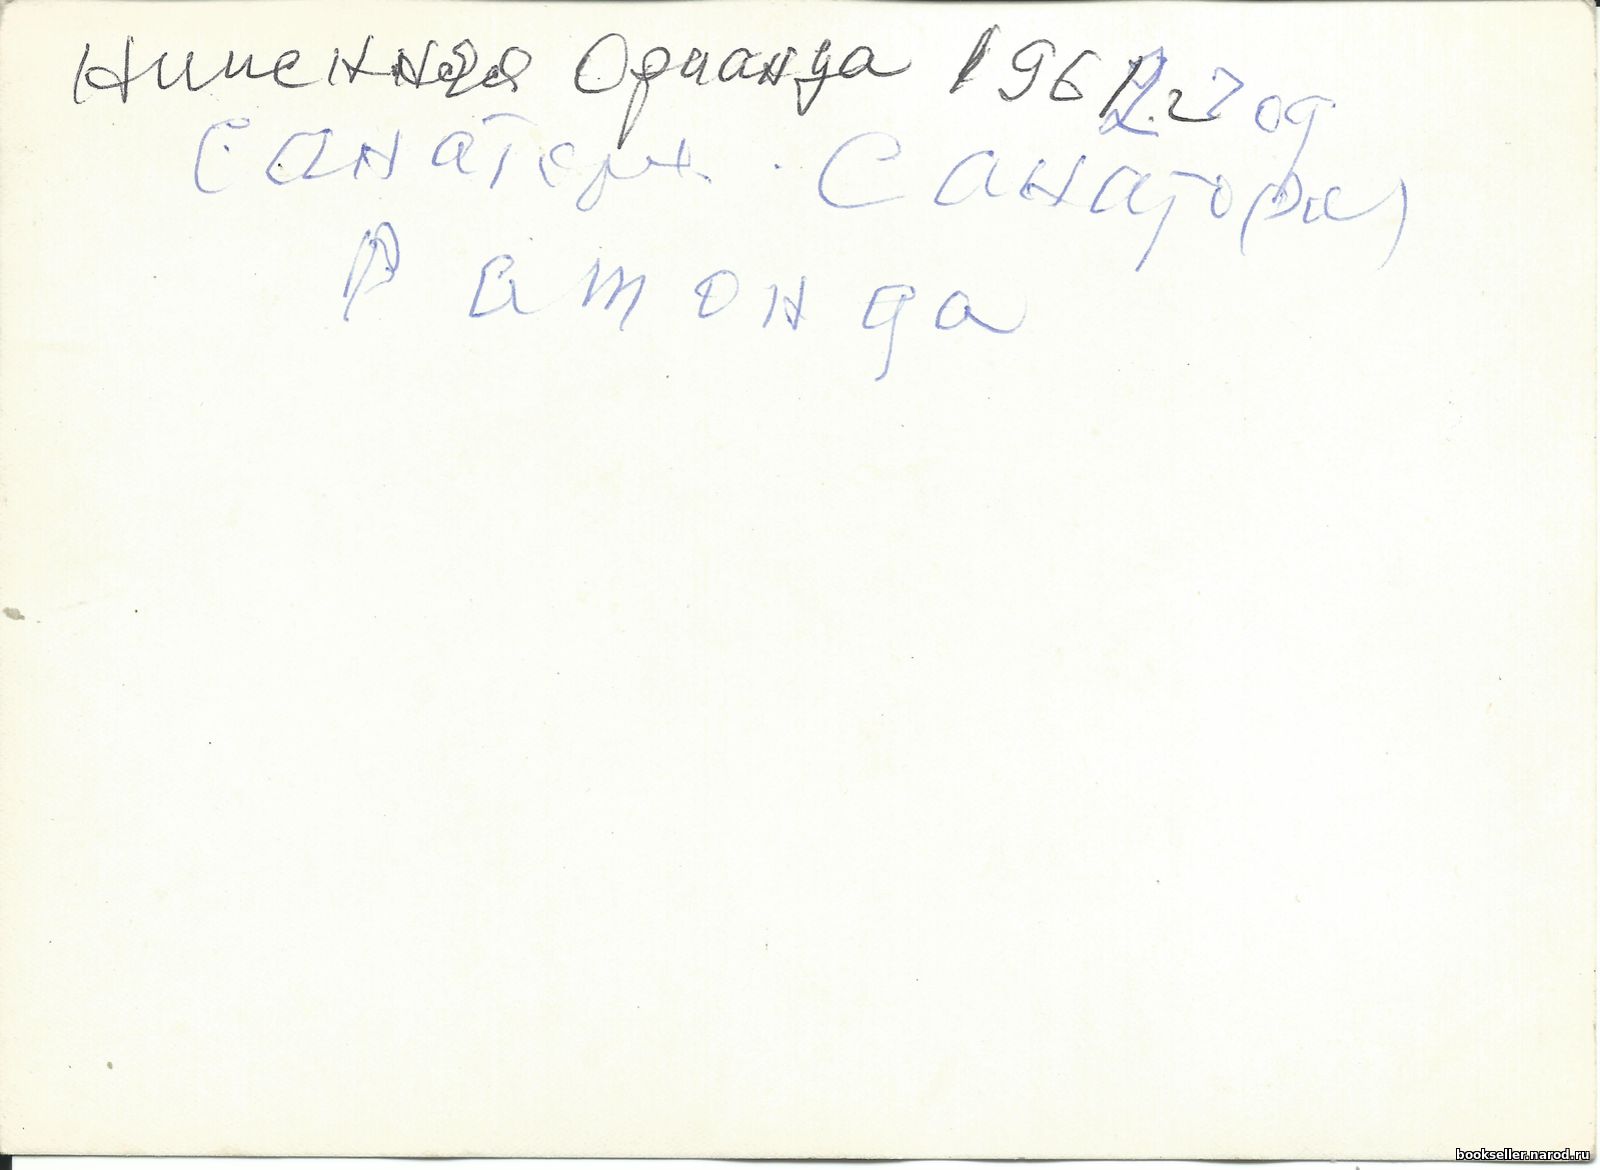 Ниженняя Ореанда 1962 год
Санатори Санатори
Ратонда
bookseller.narod.ru